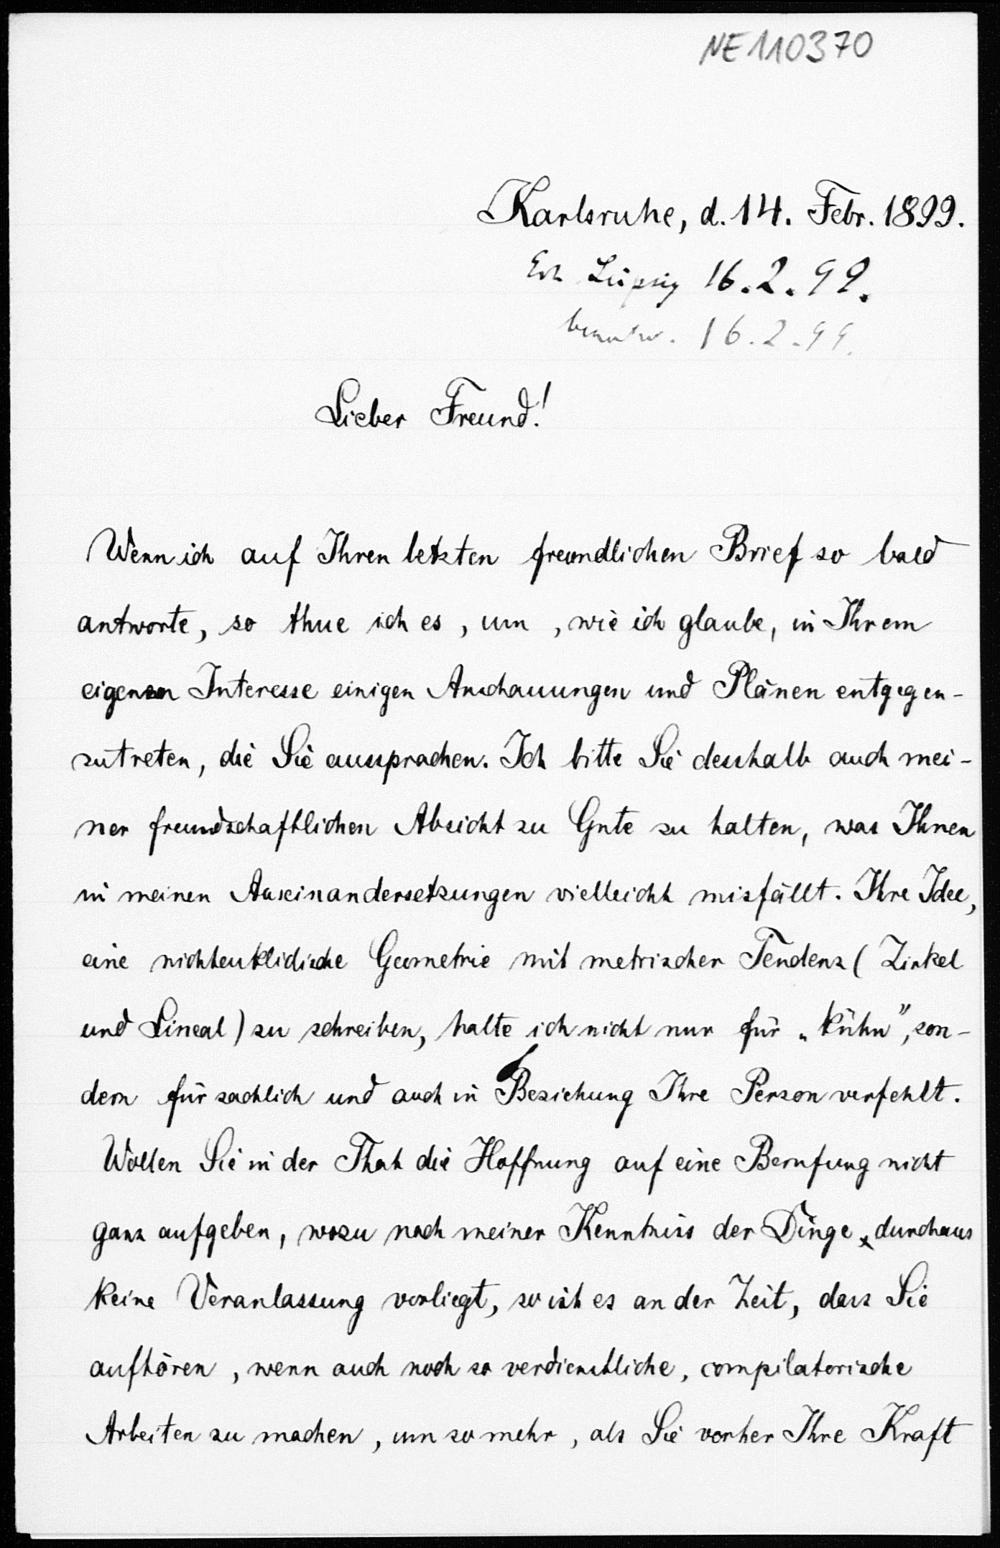 NE110370
Karlsruhe, d. 14. Febr. 1899.
Erh. Leipzig 16.2.99.
beantw. 16.2.99.
Lieber Freund!
Wenn ich auf Ihren letzten freundlichen Brief so bald
antworte, so thue ich es, um, wie ich glaube, in Ihrem
eigenen Interesse einigen Anschauungen und Plänen entgegen-
zutreten, die Sie aussprachen. Ich bitte Sie desshalb auch mei-
ner freundschaftlichen Absicht zu Gute zu halten, was Ihnen
in meinen Auseinandersetzungen vielleicht misfällt. Ihre Idee,
eine nichteuklidische Geometrie mit metrischer Tendenz (Zirkel
und Lineal) zu schreiben, halte ich nicht nur für „kühn", son-
dern für sachlich und auch in Beziehung Ihre Person verfehlt.
Wollen Sie in der That die Hoffnung auf eine Berufung nicht
ganz aufgeben, wozu nach meiner Kenntniss der Dinge durchaus
keine Veranlassung vorliegt, so ist es an der Zeit, dass Sie
aufhören, wenn auch noch so verdienstliche, compilatorische
Arbeiten zu machen, um so mehr, als Sie vorher Ihre Kraft